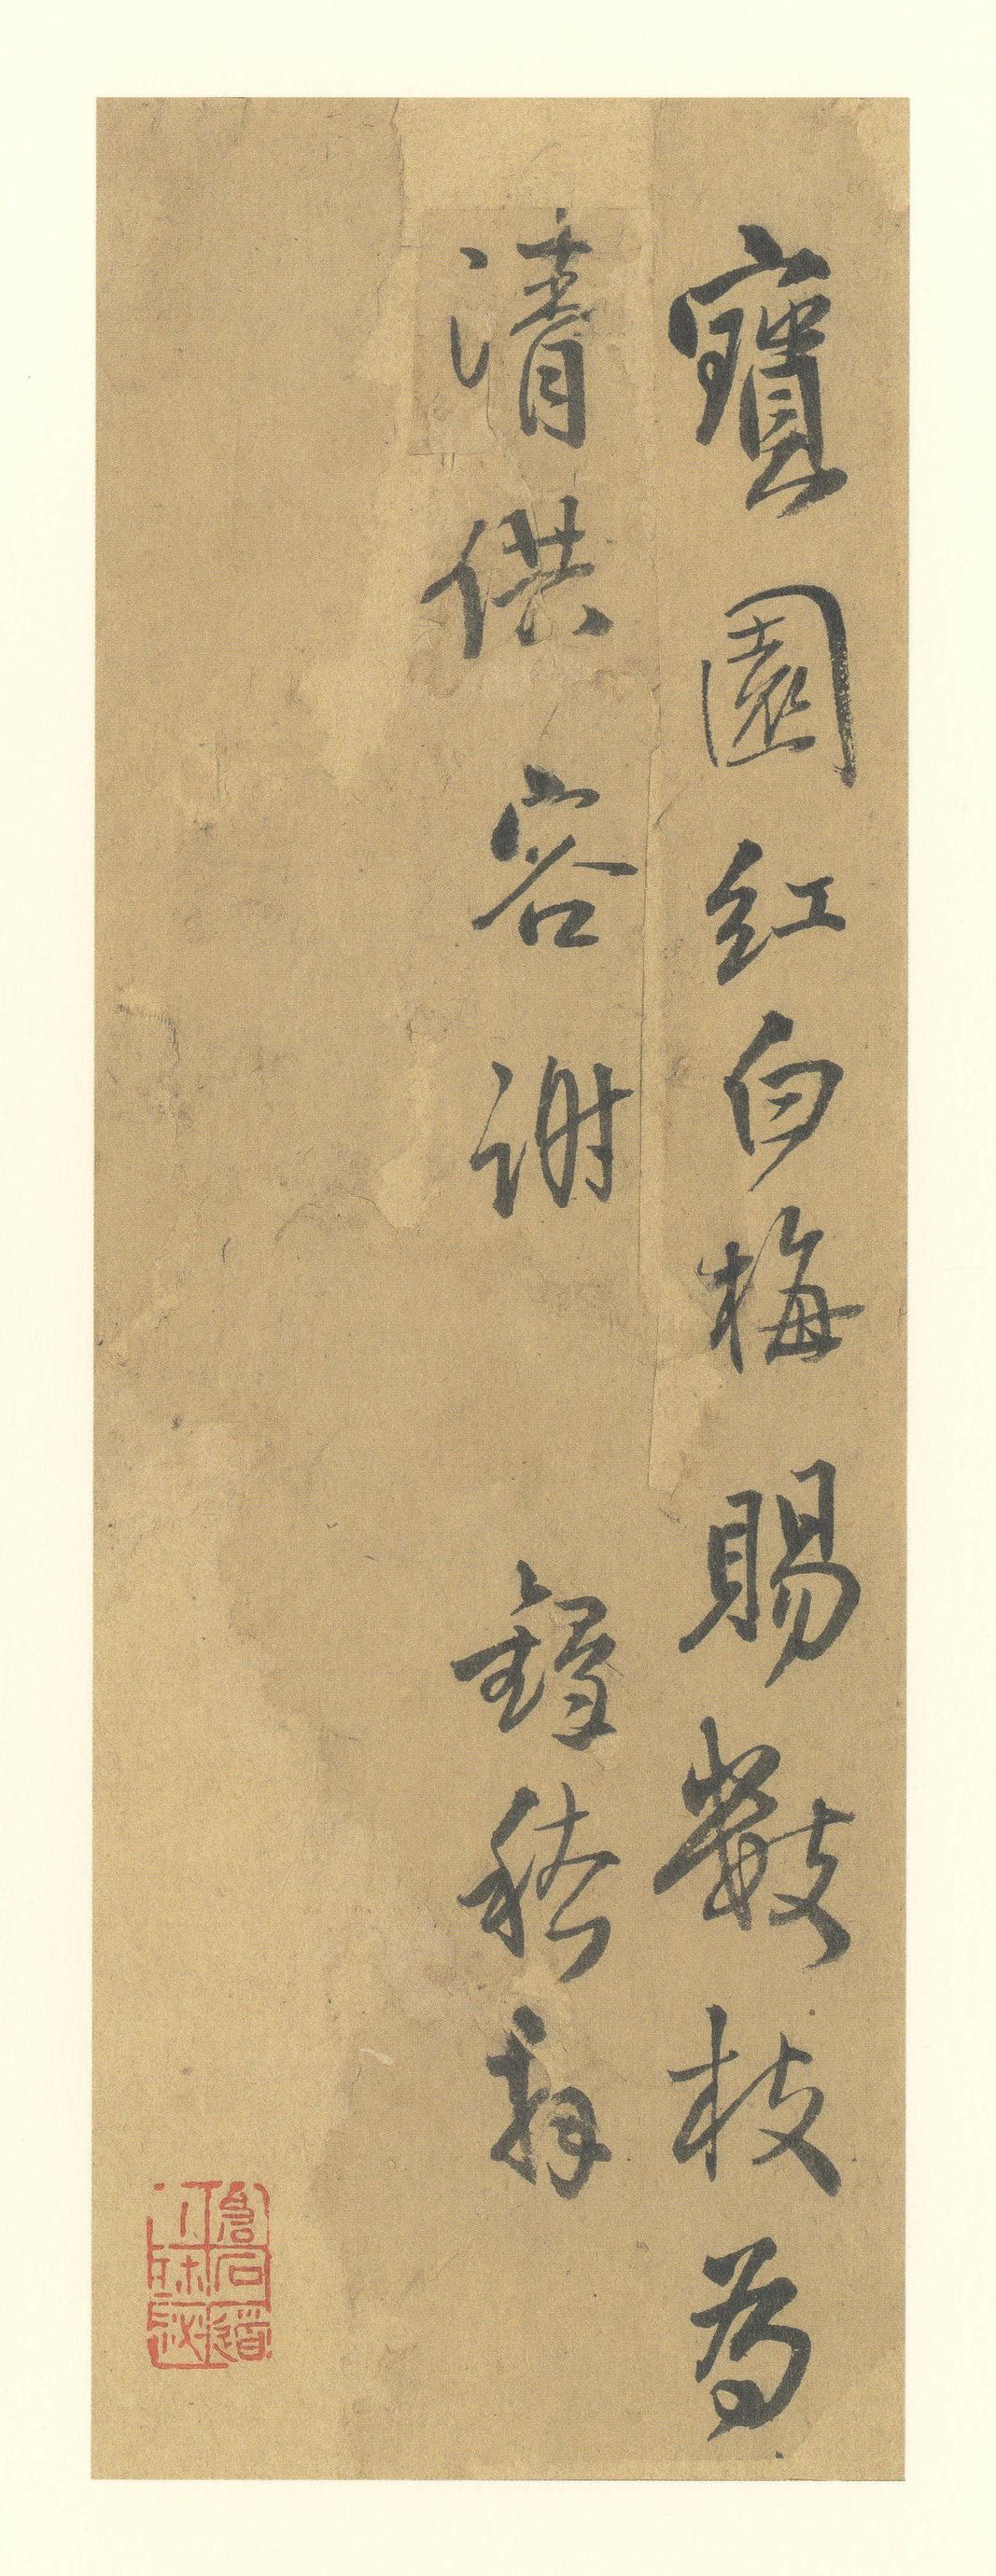 寶園紅白梅賜數枝為
清供容謝 鐸嵇拜